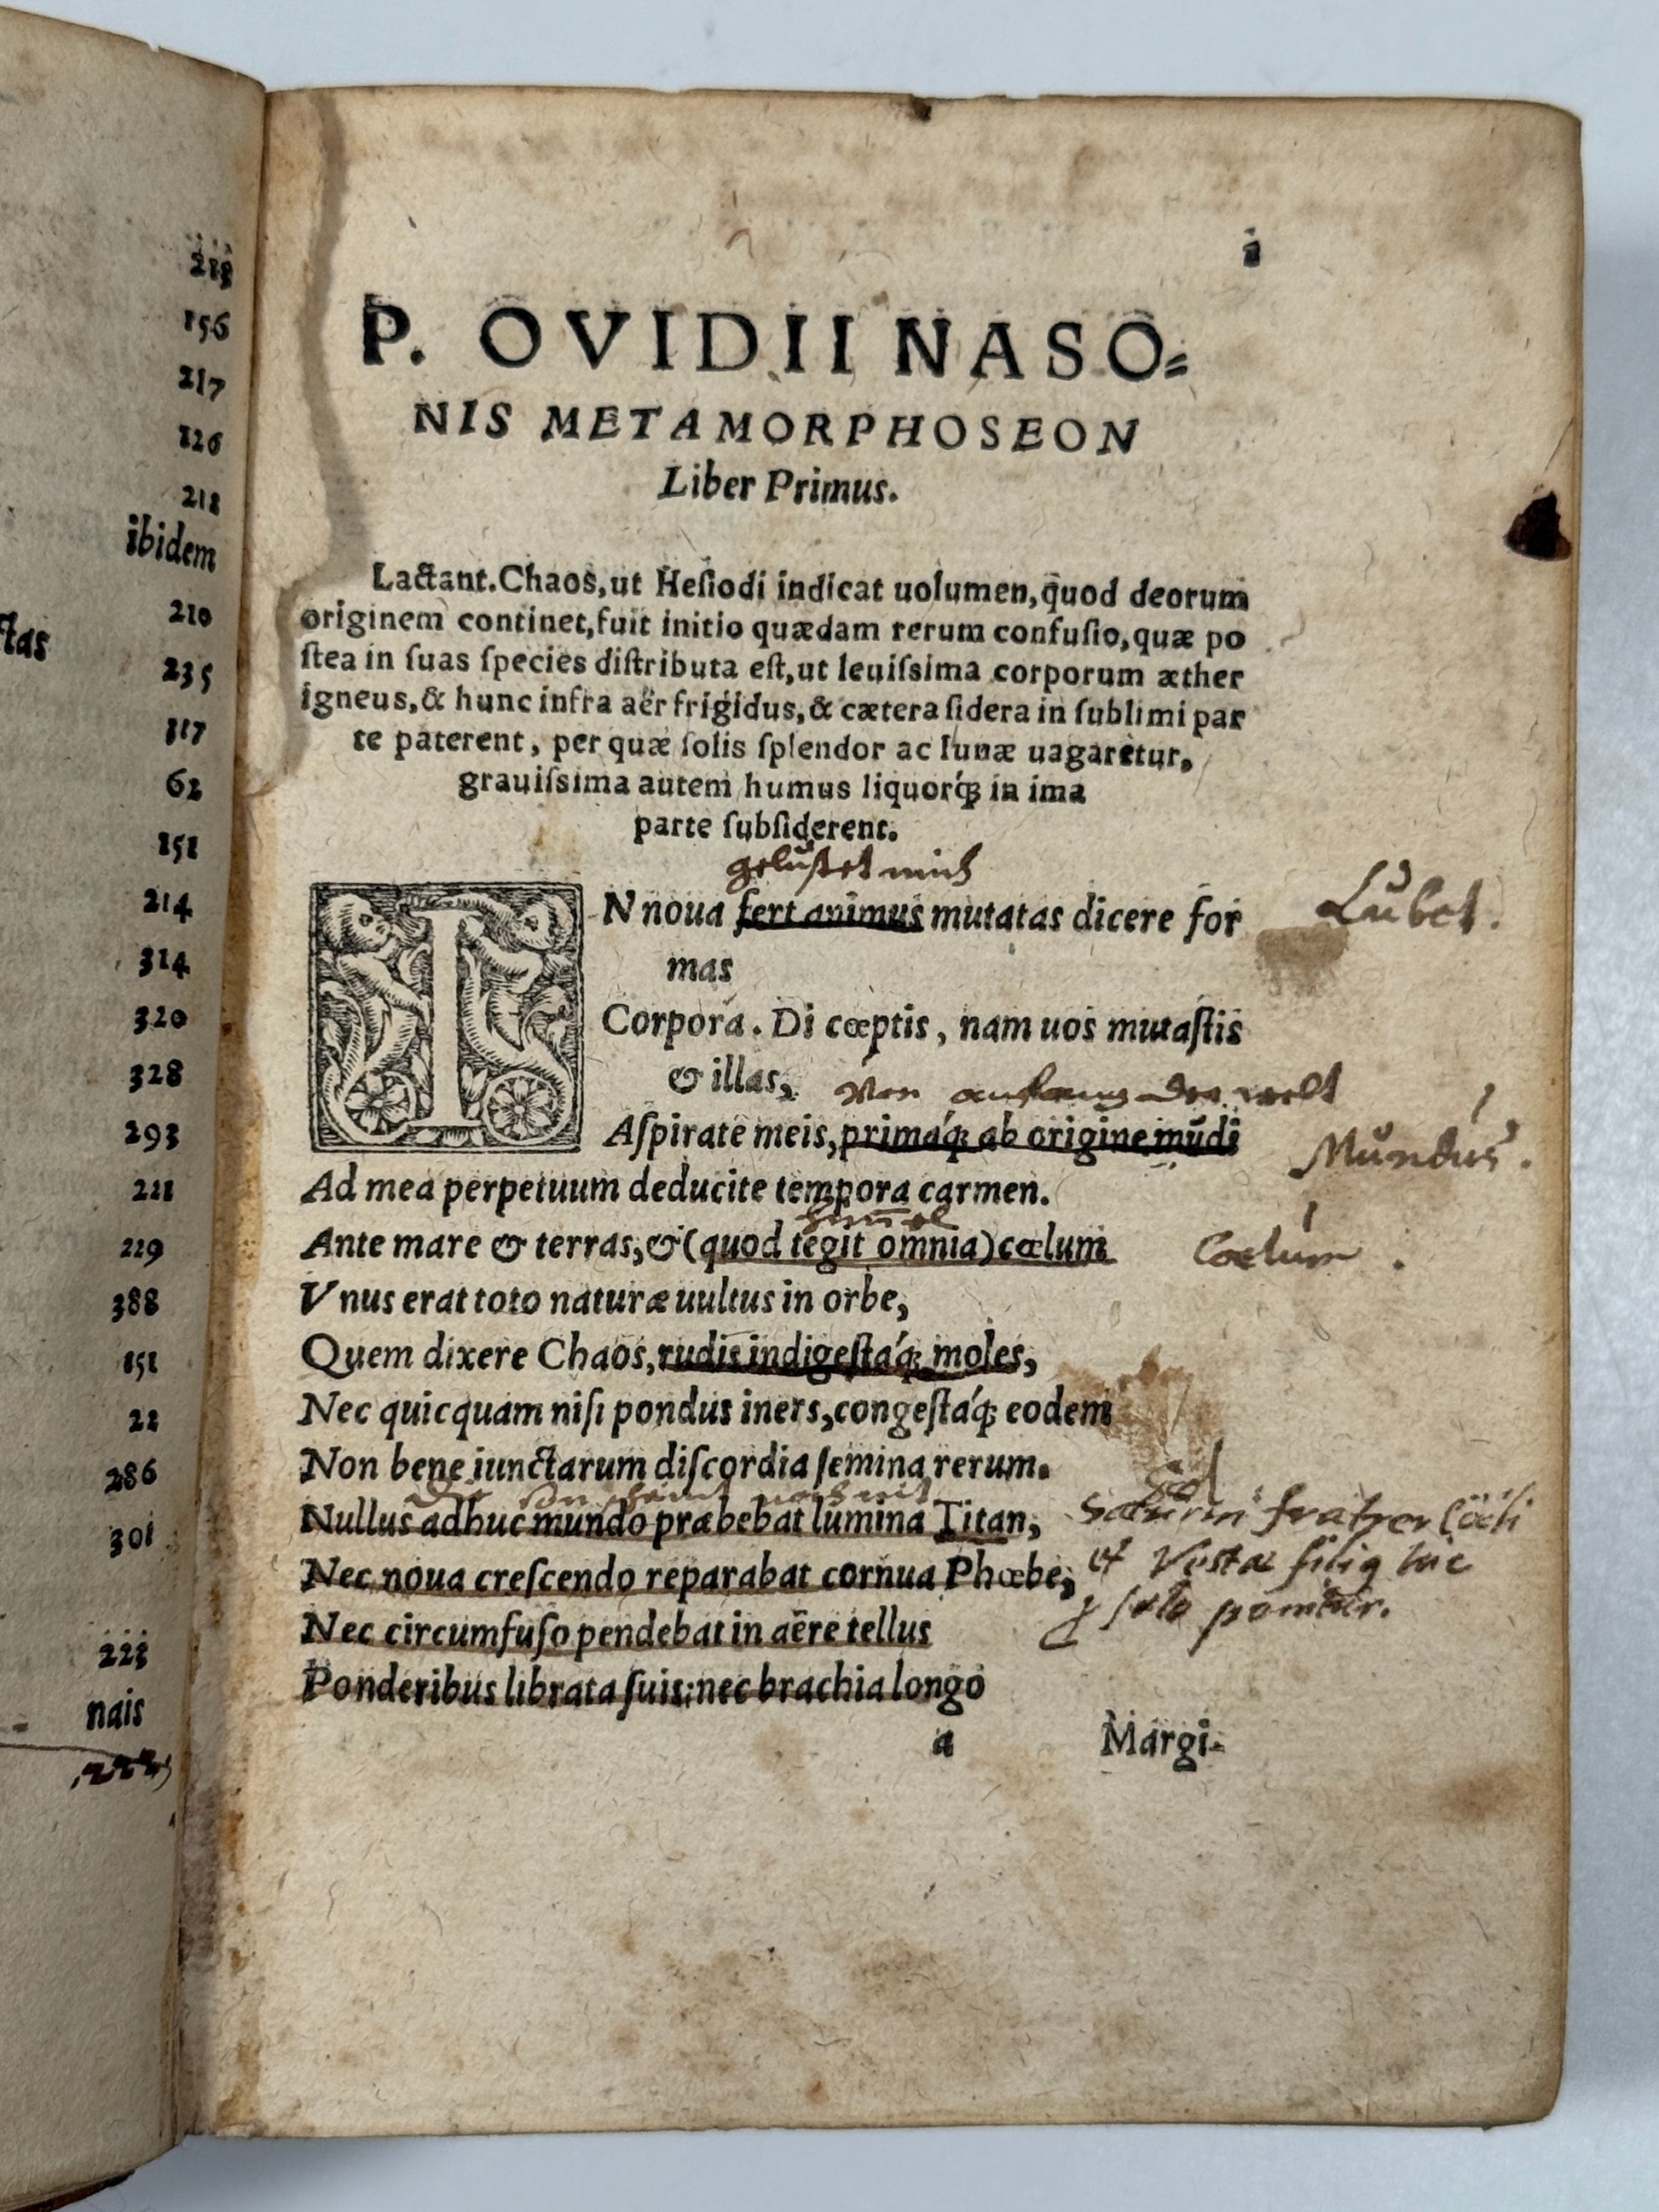 156
217
126
218
ibidem
210
ctas
235
117
62
151
214
314
320
328
293
221
229
388
151
22
286
301
223
nais
i
P. OVIDII NASO⸗
NIS METAMORPHOSEON
Liber Primus.
Lactant.Chaos,ut Heſiodi indicat uolumen,quod deorum
originem continet,fuit initio quædam rerum confuſio,quæ po
ſtea in ſuas ſpecies diſtributa eſt,ut leuiſsima corporum æther
igneus,& hunc infra aër frigidus,& cætera ſidera in ſublimi par
te paterent, per quæ ſolis ſplendor ac lunæ uagaretur,
grauiſsima autem humus liquorq́ꝫ in ima
parte ſubſiderent.
gelüstet mich
IN noua fert animus mutatas dicere for
Lubet.
mas
Corpora. Di cœptis, nam uos mutaſtis
& illas,
Von anfang der welt
Aſpirate meis,primaq́ꝫ ab origine mūdi
Mundus.
Ad mea perpetuum deducite tempora carmen.
him̄el
Ante mare & terras,&(quod tegit omnia)cœlum
Coelum.
Vnus erat toto naturæ uultus in orbe,
Quem dixere Chaos,rudis indigeſtaq́ꝫ moles,
Nec quicquam niſi pondus iners,congeſtaq́ꝫ eodem
Non bene iunctarum diſcordia ſemina rerum.
Sol
Die son scheint noch nit
Nullus adhuc mundo præbebat lumina Titan,
Saturni frater Cœli
Nec noua creſcendo reparabat cornua Phœbe,
et Vestæ filiꝰ hic
Nec circumfuſo pendebat in aëre tellus
ſole ponitur.
Ponderibus librata ſuis:nec brachia longo
a
Margi-